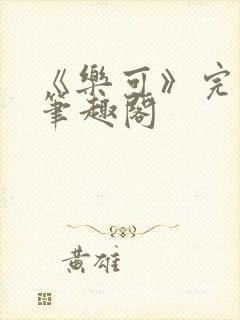 《樂可》完
筆趣閣
黃雄